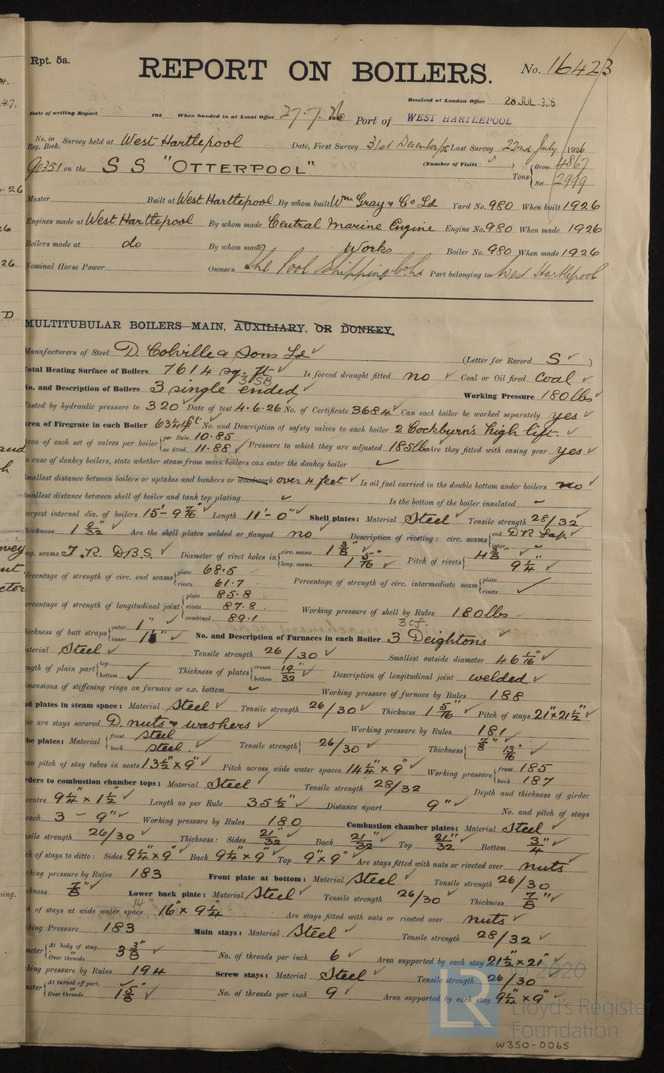 Rpt. 5a.
REPORT ON BOILERS.
No. 16423
Received at London Office 28 JUL 1926
Date of writing Report 192 When handed in at Local Office 27.7.1926 Port of WEST HARTLEPOOL
No. in Reg. Book. Survey held at West Hartlepool Date, First Survey 31st December/25 Last Survey 22nd July 1926
90351 on the S S "OTTERPOOL" (Number of Visits ) Tons Gross 4867 Net 2999
Master Built at West Hartlepool By whom built Wm Gray & Co Ld Yard No. 980 When built 1926
Engines made at West Hartlepool By whom made Central Marine Engine Engine No. 980 When made 1926
Boilers made at do By whom made Works Boiler No. 980 When made 1926
Nominal Horse Power Owners The Pool Shipping Co. Ld Port belonging to West Hartlepool
MULTITUBULAR BOILERS—MAIN, AUXILIARY, OR DONKEY.
Manufacturers of Steel D. Colville & Sons Ld (Letter for Record S )
Total Heating Surface of Boilers 7614 sq. ft Is forced draught fitted no Coal or Oil fired coal
No. and Description of Boilers 3 single ended 3SB Working Pressure 180 lbs
Tested by hydraulic pressure to 320 Date of test 4.6.26 No. of Certificate 3684 Can each boiler be worked separately yes
Area of Firegrate in each Boiler 63¼ ft No. and Description of safety valves to each boiler 2 Cockburn's high lift
Area of each set of valves per boiler per Rule 10.85 as fitted 11.88 Pressure to which they are adjusted 185 lbs Are they fitted with easing gear yes
In case of donkey boilers, state whether steam from main boilers can enter the donkey boiler
Smallest distance between boilers or uptakes and bunkers or woodwork over 4 feet Is oil fuel carried in the double bottom under boilers no
Smallest distance between shell of boiler and tank top plating Is the bottom of the boiler insulated
Largest internal dia. of boilers 15'-9 7/16" Length 11'-0" Shell plates: Material Steel Tensile strength 28/32
Thickness 1 9/32 Are the shell plates welded or flanged no Description of riveting: circ. seams end D.R. Lap inter.
long. seams T.R. D.B.S. Diameter of rivet holes in circ. seams 1 3/8" long. seams 1 5/16" Pitch of rivets 4 3/8" 9¼"
Percentage of strength of circ. end seams plate 68.5 rivets 61.7 Percentage of strength of circ. intermediate seam plate rivets
Percentage of strength of longitudinal joint plate 85.8 rivets 87.8 combined 89.1 Working pressure of shell by Rules 180 lbs
Thickness of butt straps outer 1" inner 1 1/8" No. and Description of Furnaces in each Boiler 3 Deightons 3cf.
Material Steel Tensile strength 26/30 Smallest outside diameter 46 1/16"
Length of plain part top bottom Thickness of plates crown bottom 19/32" Description of longitudinal joint welded
Dimensions of stiffening rings on furnace or c.c. bottom Working pressure of furnace by Rules 188
End plates in steam space: Material Steel Tensile strength 26/30 Thickness 1 5/16" Pitch of stays 21" x 21½"
How are stays secured D. nuts & washers Working pressure by Rules 181
Tube plates: Material front Steel back steel Tensile strength 26/30 Thickness 7/8" 13/16"
Mean pitch of stay tubes in nests 13½" x 9" Pitch across wide water spaces 14¼" x 9" Working pressure front 185 back 187
Girders to combustion chamber tops: Material Steel Tensile strength 28/32 Depth and thickness of girder
at centre 9¼" x 1½" Length as per Rule 35½" Distance apart 9" No. and pitch of stays
in each 3 - 9" Working pressure by Rules 180 Combustion chamber plates: Material Steel
Tensile strength 26/30 Thickness: Sides 21/32" Back 21/32" Top 21/32" Bottom 3/4"
Pitch of stays to ditto: Sides 9¼" x 9" Back 9¼" x 9" Top 9" x 9" Are stays fitted with nuts or riveted over nuts
Working pressure by Rules 183 Front plate at bottom: Material Steel Tensile strength 26/30
Thickness 7/8" Lower back plate: Material Steel Tensile strength 26/30 Thickness 7/8"
Pitch of stays at wide water space 14" 16" x 9¼ Are stays fitted with nuts or riveted over nuts
Working Pressure 183 Main stays: Material Steel Tensile strength 28/32
Diameter At body of stay, or Over threads 3 3/8" No. of threads per inch 6 Area supported by each stay 21½" x 21"
Working pressure by Rules 194 Screw stays: Material Steel Tensile strength 26/30
Diameter At turned off part, or Over threads 1 5/8" No. of threads per inch 9 Area supported by each stay 9¼" x 9"
LR
2020
Lloyd's Register
Foundation
W350-0065